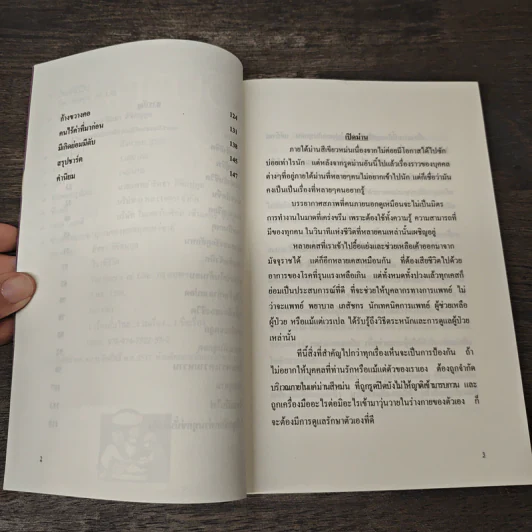 ช้างชวางคอ 124
คนไร้ค่าที่มาก่อน 131
มีเกิดย่อมมีดับ 138
สรุปชาร์ต 146
คำนิยม 147
2
เปิดม่าน
ภายใต้ม่านสีเขียวหม่นเนื่องจากไม่ค่อยมีโอกาสได้ไปซัก
บ่อยเท่าไรนัก แต่หลังจากรูดม่านอันนี้ไปแล้วเรื่องราวของบุคคล
ต่างๆที่อยู่ภายใต้ม่านที่หลายๆคนไม่อยากเข้าไปนัก แต่ก็เชื่อว่ามัน
คงเป็นเป็นเรื่องที่หลายๆคนอยากรู้
บรรยากาศสภาพที่คนภายนอกดูเหมือนจะไม่เป็นมิตร
การทำงานในมาดที่เคร่งขรึม เพราะต้องใช้ทั้งความรู้ ความสามารถที่
มีของทุกคน ในวินาทีแห่งชีวิตที่หลายคนเหล่านั้นเผชิญอยู่
หลายเคสที่เราเข้าไปยื้อแย่งและช่วยเหลือเค้าออกมาจาก
มัจจุราชได้ แต่ก็อีกหลายเคสเหมือนกัน ที่ต้องเสียชีวิตไปด้วย
อาการของโรคที่รุนแรงเหลือเกิน แต่ทั้งหมดทั้งปวงแล้วทุกเคสก็
ย่อมเป็นประสบการณ์ที่ดี ที่จะช่วยให้บุคลากรทางการแพทย์ ไม่
ว่าจะแพทย์ พยาบาล เภสัชกร นักเทคนิคการแพทย์ ผู้ช่วยเหลือ
ผู้ป่วย หรือแม้แต่เวรเปล ได้รับรู้ถึงวิธีตระหนักและการดูแลผู้ป่วย
เหล่านั้น
ทีนี้สิ่งที่สำคัญไปกว่าทุกเรื่องเห็นจะเป็นการป้องกัน ถ้า
ไม่อยากให้บุคคลที่ท่านรักหรือแม้แต่ตัวของเราเอง ต้องถูกจำกัด
บริเวณภายในแค่ม่านสีหม่น ที่ถูกรูดปิดบังไม่ให้ญาติเข้ามารบกวน และ
ถูกเครื่องมืออะไรต่อมิอะไรเข้ามาวุ่นวายในร่างกายของตัวเอง ก็
จะต้องมีการดูแลรักษาตัวเองที่ดี
3